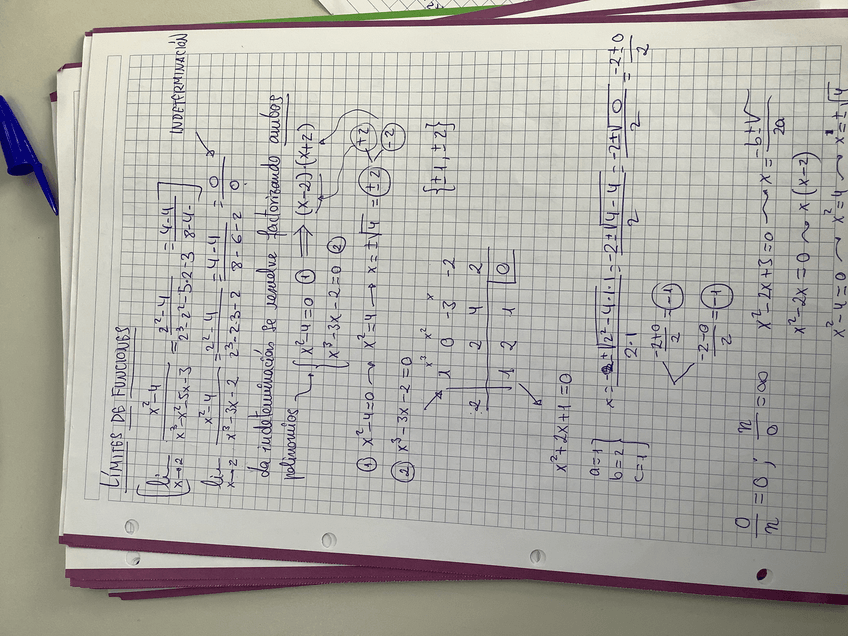 LÍMITES DE FUNCIONES
lim x→2 x²-4 / x³-x²-5x-3 = 2²-4 / 2³-2²-5·2-3 = 4-4 / 8-4-
INDETERMINACIÓN
lim x→2 x²-4 / x³-3x-2 = 2²-4 / 2³-2·3-2 = 4-4 / 8-6-2 = 0/0
La indeterminación se resuelve factorizando ambos
polinomios { x²-4=0 ① ⟹ (x-2)·(x+2)
x³-3x-2=0 ②
① x²-4=0 → x²=4 → x=±√4 = ±2 < +2
-2
② x³-3x-2=0
x³ x² x
1 0 -3 -2 {±1, ±2}
2 2 4 2
1 2 1 0
x²+2x+1=0
a=1
b=2
c=1
x = -2±√2²-4·1·1 / 2·1 = -2±√4-4 / 2 = -2±√0 / 2 = -2±0 / 2
-2+0 / 2 = -1
-2-0 / 2 = -1
0/n = 0 ; n/0 = ∞
x²-2x+3=0 → x = -b±√ / 2a
x²-2x=0 → x(x-2)
x²-4=0 → x²=4 → x=±√4